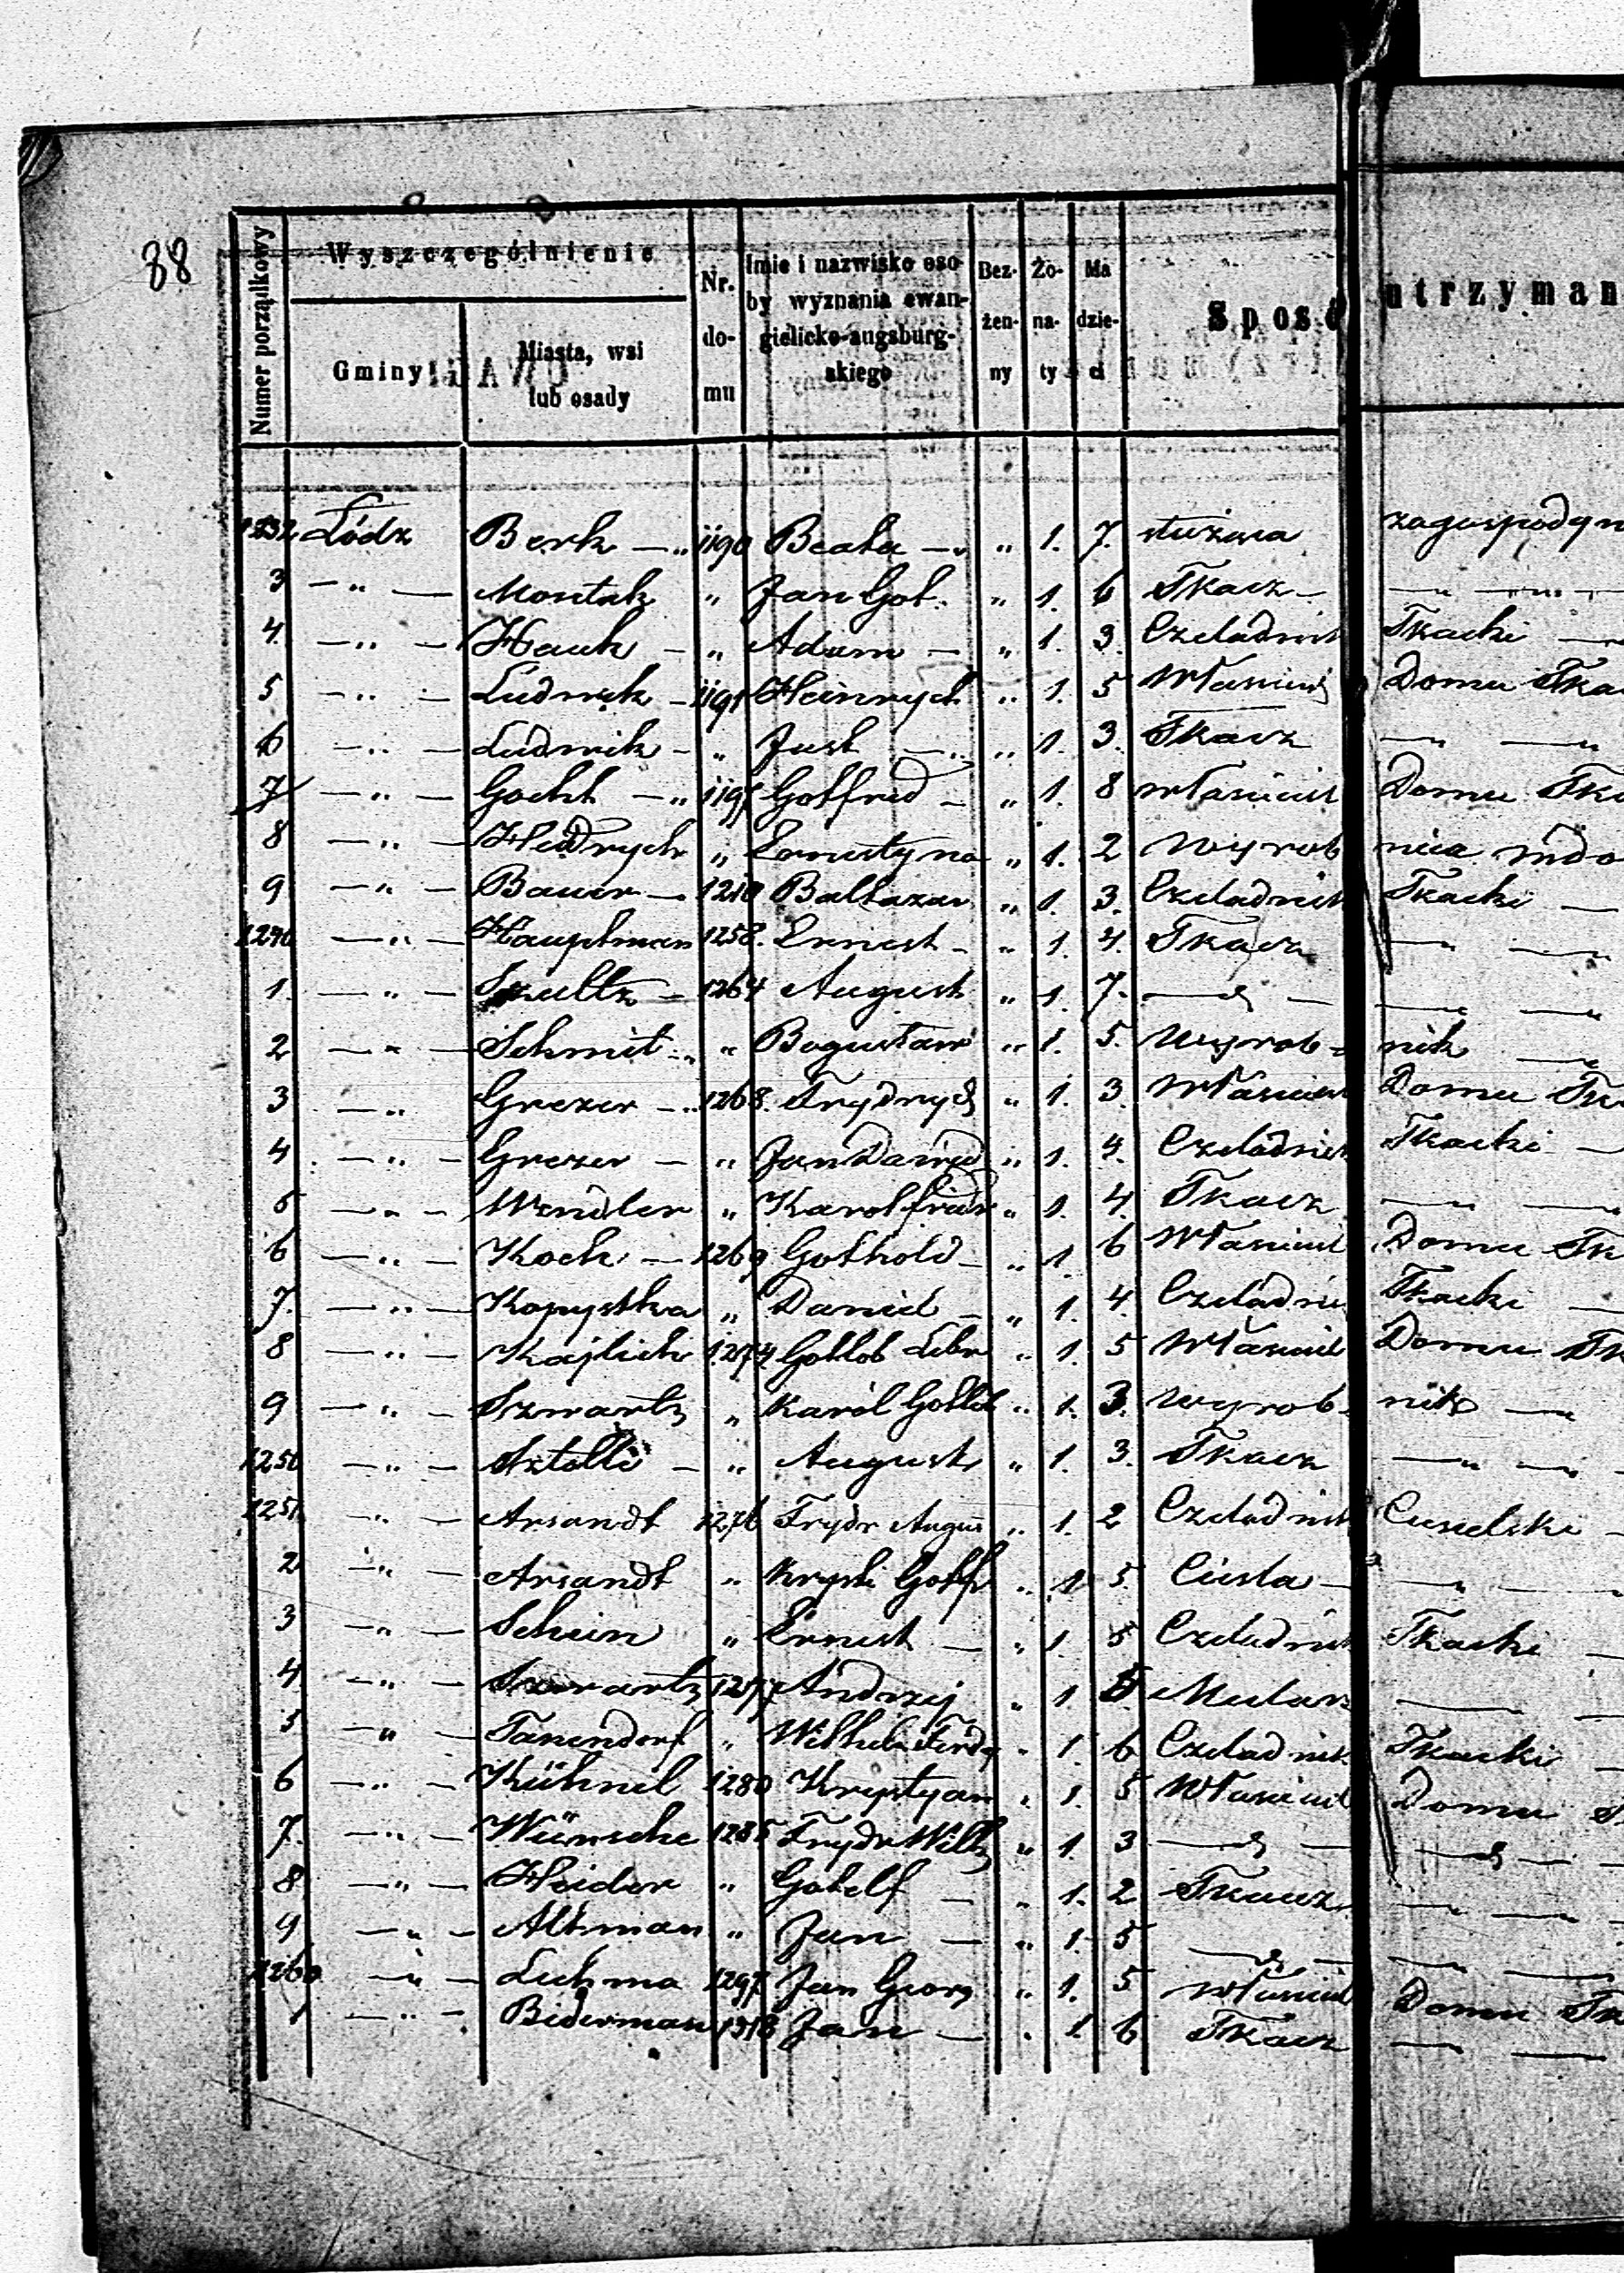 88
Numer porządkowy | Wyszczególnienie | Nr. domu | Imie i nazwisko osoby wyznania ewangielicko-augsburgskiego | Bezżenny | Żonaty | Ma dzieci | Sposó utrzyman
Gminy | Miasta, wsi lub osady
1232 Łódz Berk — „ 1190 Beata — „ „ 1. 7. służąca zagospodyn
3 — „ — Montak „ Jan Got. „ 1. 6 Tkacz — — „ — „ —
4. — „ — Hauk — „ Adam — „ 1. 3. Czeladnik Tkacki —
5 — „ — Ludwik — 1191 Heinrych „ 1. 5 Własciciel Domu Tka
6 — „ — Ludwik — „ Just — „ „ 1. 3. Tkacz — „ — „
7 — „ — Gocht — „ 1197 Gotfried — „ 1. 8 własciciel Domu Tka
8 — „ — Heidrych „ Ernestyna „ 1. 2 Wyrob nica wdo
9 — „ — Bauer — 1210 Baltazar „ 1. 3. Czeladnik Tkacki —
1240 — „ — Hauptman 1258. Ernest — „ 1. 4. Tkacz — „ — „
1. — „ — Szultz — 1264 August „ 1. 7. — „ — — „ — „
2 — „ — Schmit — „ „ Bogusław „ 1. 5. Wyrob- nik — „
3 — „ Grezer — „ 1268. Frydrych „ 1. 3. Własciciel Domu Tka
4. — „ — Grezer — „ Jan Dawid „ 1. 4. Czeladnik Tkacki —
5 — „ — Wendler „ Karol fridr „ 1. 4. Tkacz — „ — „
6 — „ — Koch — 1269 Gothold — „ 1. 6 Własciciel Domu Tk
7. — „ — Kopystka „ Daniel — „ 1. 4 Czeladnik Tkacki —
8 — „ — Kajlich 1274 Gotlob Lebr „ 1. 5 Własciciel Domu Tk
9 — „ — Szwartz „ Karol Gotlob „ 1. 3. wyrob- nik — „
1250 — „ — Sztolle — „ August „ 1. 3. Tkacz — „ — „ —
1251. — „ — Arsandt 1276 Frydr Augus „ 1. 2 Czeladnik Ciesielski —
2 — „ — Arsandt „ Krysti Gotf „ 1 5. Ciesla — — „ —
3 — „ — Schein „ Ernest — „ 1. 5 Czeladnik Tkacki —
4. — „ — Szwartz 1277 Andrzej „ 1 5 Mularz — —
5 — „ — Tanendorf „ Wilhelm Ferdy „ 1. 6 Czeladnik Tkacki —
6 — „ — Kühnel 1280 Krystyan „ 1. 5 Własciciel Domu
7. — „ — Wünsche 1285 Frydr Wilh „ 1. 3 — „ — — „ —
8. — „ — Heider „ Gotelf — „ 1. 2 Tkacz — „ —
9 — „ — Altman „ Jan — „ 1. 5 — „ — — „ —
1260 — „ — Lechma 1297 Jan Georg „ 1. 5 własciciel Domu Tk
1 — „ — Biderman 1313 Jan — „ 1. 6 Tkacz — „ —